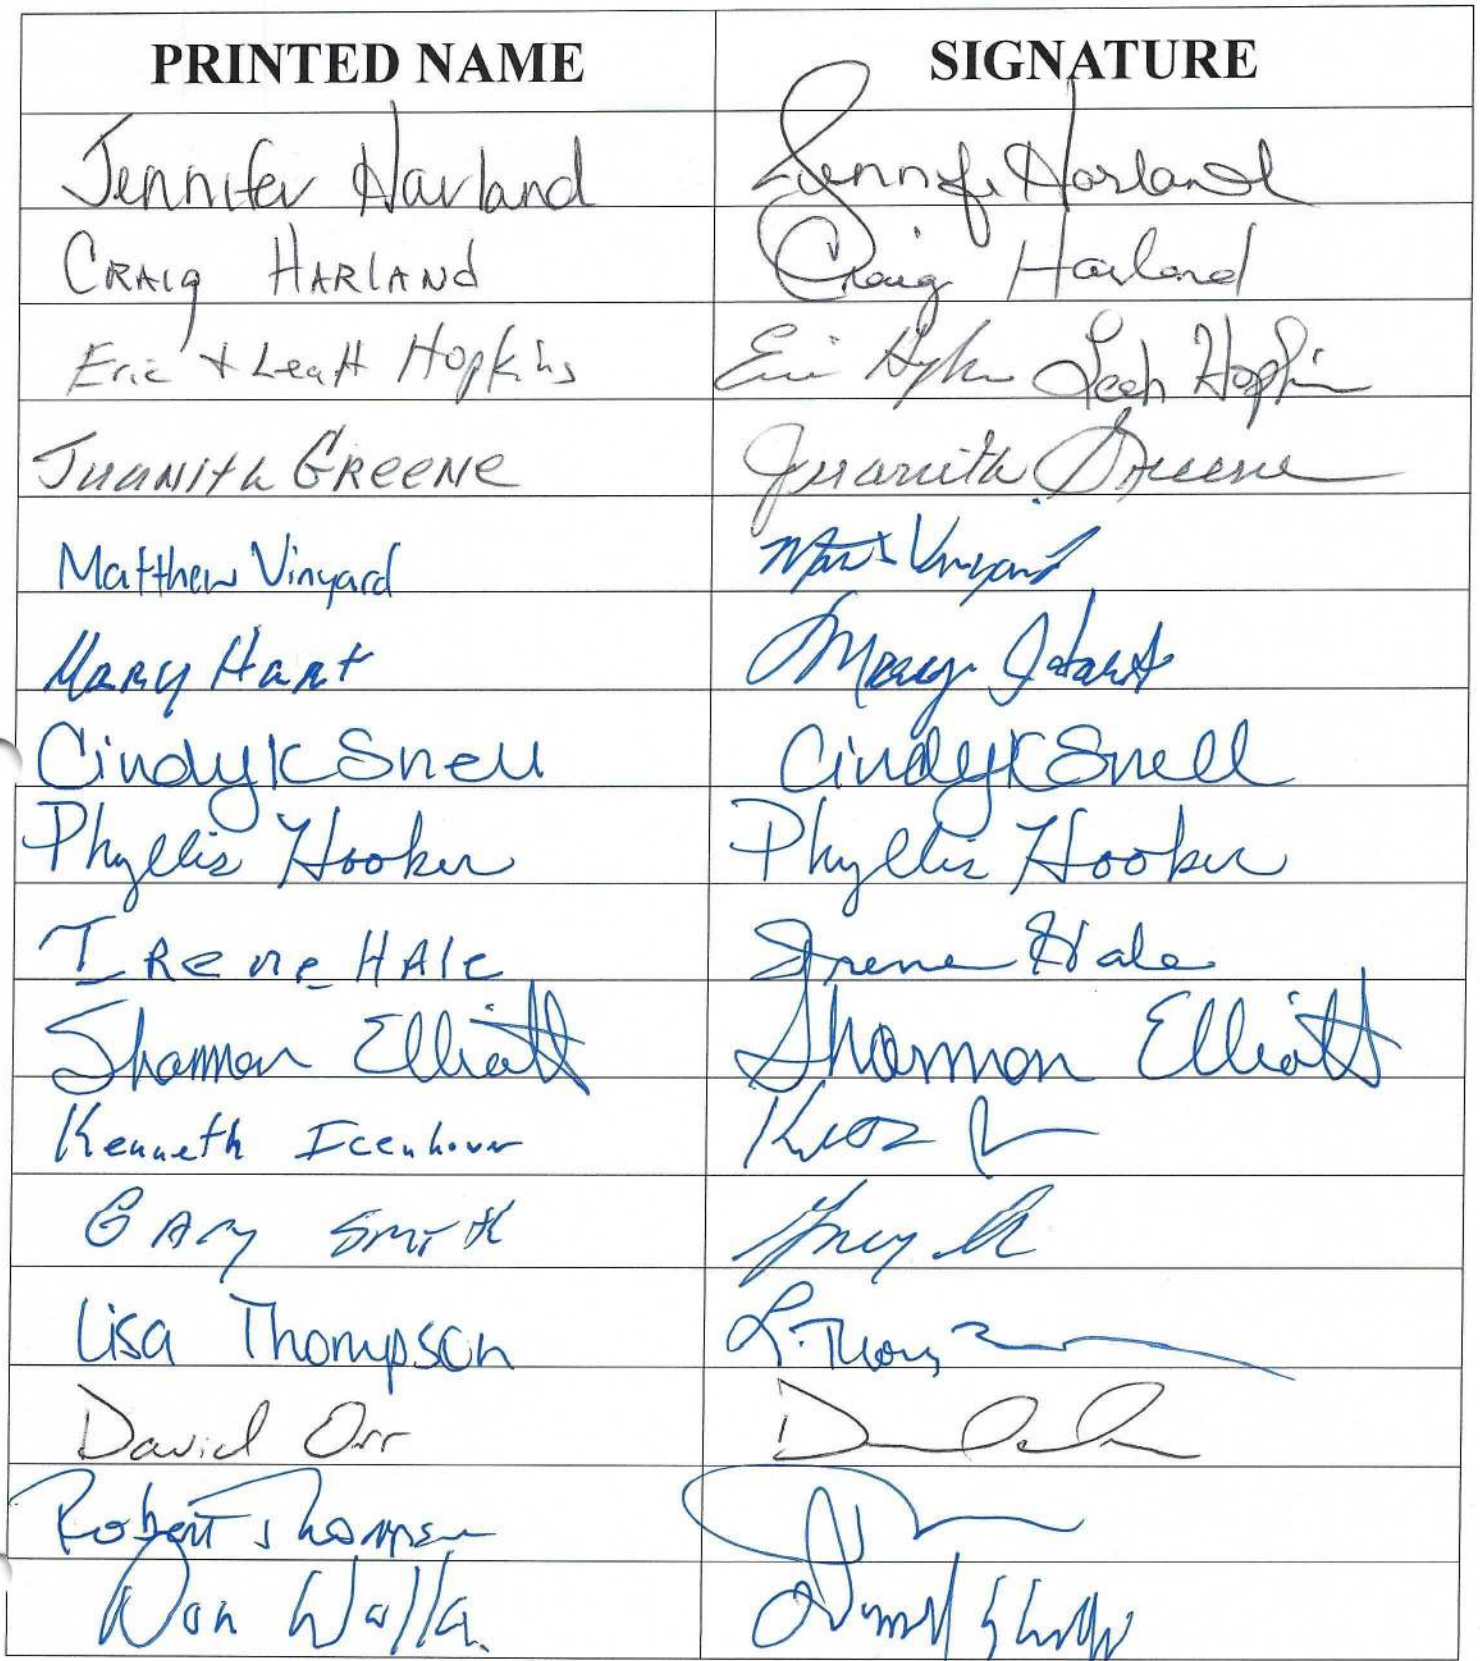 PRINTED NAME SIGNATURE
Jennifer Harland Jennifer Harland
CRAIg HARLANd Craig Harland
Eric + LeaH Hopkins Eric Leah Hopkins
JuaNita GReeNe Juanita Greene
Matthew Vinyard Matt Vinyard
MARy HaRt Mary Hart
Cindy K Snell Cindy K Snell
Phyllis Hooker Phyllis Hooker
IRene HAle Irene Hale
Shannon Elliott Shannon Elliott
Kenneth Icenhower
GAry Smith Gary
Lisa Thompson L. Thom
David Orr
Robert Thompson
Don